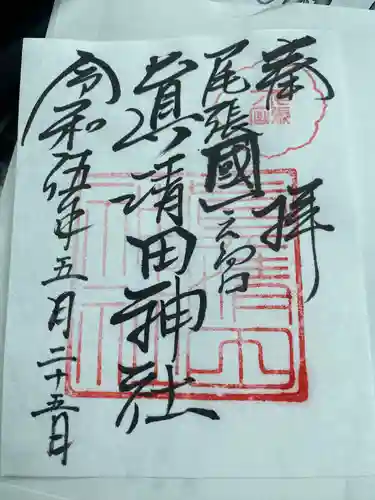 奉拝
尾張國一之宮
真清田神社
令和伍年五月二十五日